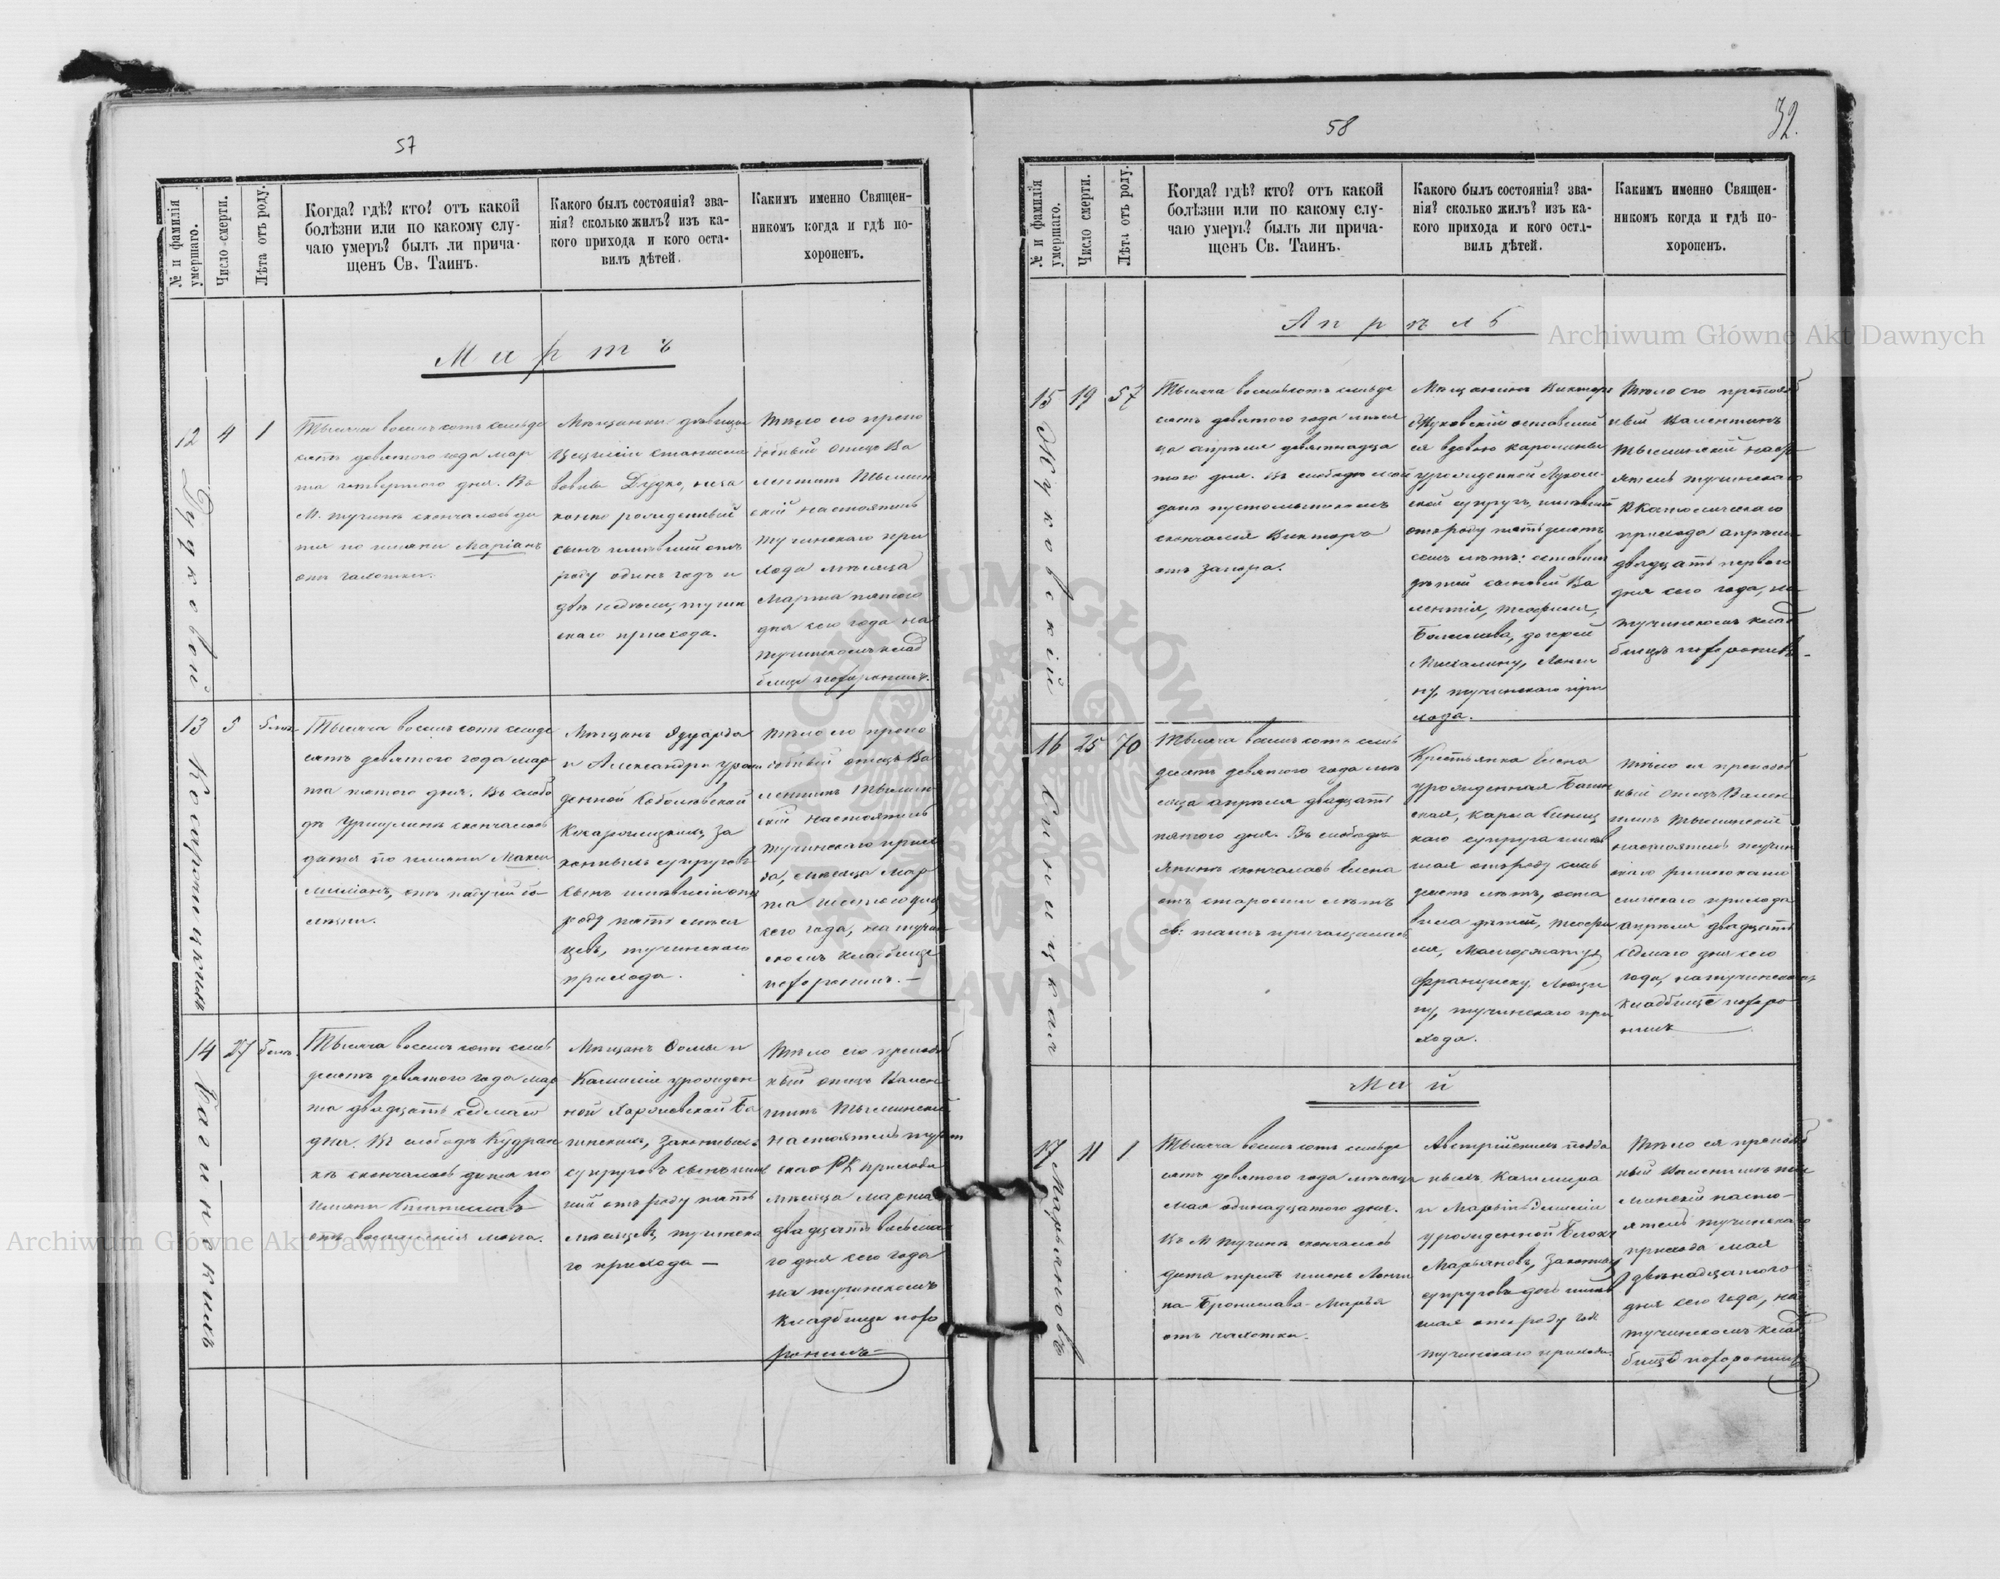 57
№ и фамилія умершаго.
Число смерти.
Лѣта отъ роду.
Когда? гдѣ? кто? отъ какой
болѣзни или по какому слу-
чаю умеръ? былъ ли прича-
щенъ Св. Таинъ.
Какого былъ состоянія? зва-
нія? сколько жилъ? изъ ка-
кого прихода и кого оста-
вилъ дѣтей.
Какимъ именно Священ-
никомъ когда и гдѣ по-
хороненъ.
Мартъ
12
4
1
Тысяча восемь сотъ семьде
сятъ девятого года мар
та четвертого дня. Въ
М. Тучинѣ скончалось ди
тя по имени Маріанъ
отъ чахотки.
Мѣщанки дѣвицы
Цециліи
Дудко, неза
конно рожденный
сынъ имѣвшій отъ
роду одинъ годъ и
двѣ недѣли, тучин
скаго прихода.
Тѣло его препо
добный отецъ Ва
лентинъ
скій настоятель
тучинскаго при
хода мѣсяца
Марта пятого
дня сего года на
тучинскомъ клад
бище похоронилъ.
13
5
Тысяча восемь сотъ семьде
сятъ девятого года мар
та пятого дня. Въ слобо
дѣ скончалось
дитя по имени Макси
миліанъ, отъ падучей бо
лѣзни.
Мѣщанъ Эдуарда
и Александры урож
денной Соболевской
за
конныхъ супруговъ
сынъ имѣвшій отъ
роду пять мѣся
цевъ, тучинскаго
прихода.
Тѣло его препо
добный отецъ Ва
лентинъ
скій настоятель
тучинскаго прихо
да, мѣсяца Мар
та шестого дня
сего года, на тучин
скомъ кладбище
похоронилъ. —
14
27
Тысяча восемь сотъ семь
десятъ девятого года мар
та двадцать седмаго
дня. Въ слободѣ Кудран
кѣ скончалось дитя по
имени Станиславъ
отъ воспаленія мозга.
Мѣщанъ Ѳомы и
Камиліи урожден
ной Харчевской Ба
гинскихъ, законныхъ
супруговъ сынъ имѣв
шій отъ роду пять
мѣсяцевъ, тучинска
го прихода —
Тѣло его преподоб
ный отецъ Вален
тинъ
настоятель тучин
скаго РК прихода
мѣсяца марта
двадцать восьма
го дня сего года
на тучинскомъ
кладбище похо
ронилъ
58
32.
№ и фамилія умершаго.
Число смерти.
Лѣта отъ роду.
Когда? гдѣ? кто? отъ какой
болѣзни или по какому слу-
чаю умеръ? былъ ли прича-
щенъ Св. Таинъ.
Какого былъ состоянія? зва-
нія? сколько жилъ? изъ ка-
кого прихода и кого оста-
вилъ дѣтей.
Какимъ именно Священ-
никомъ когда и гдѣ по-
хороненъ.
Апрѣль
15 Жуковскій
19
57
Тысяча восемьсотъ семьде
сятъ девятого года мѣся
ца апрѣля девятнадца
того дня. Въ слободѣ
скончался Викторъ
отъ запора.
Мѣщанинъ Викторъ
Жуковскій оставившій
ся вдовою каролины
урожденной
супругъ, имѣвшій
отъ роду пятьдесятъ
семь лѣтъ: оставилъ
дѣтей сыновей Ва
лентія, Теофиля,
Болеслава, дочерей
Михалину,
тучинскаго при
хода.
Тѣло его преподоб
ный Валентинъ
насто
ятель тучинскаго
Р Католическаго
прихода апрѣля
двадцать первого
дня сего года, на
тучинскомъ клад
бищѣ похоронилъ
16 Синицкая
25
70
Тысяча восемь сотъ семь
десятъ девятого года мѣ
сяца апрѣля двадцать
пятого дня. Въ слободѣ
скончалась Елена
отъ старости лѣтъ
св: таинъ причащалась
Крестьянка Елена
урожденная
Карла Синиц
каго супруга имѣв
шая отъ роду семь
десятъ лѣтъ, оста
вила дѣтей, Теофи
ля, Малгоржату,
Францишку, Люци
ну, тучинскаго при
хода.
Тѣло ея преподоб
ный отецъ Вален
тинъ
настоятель тучин
скаго римскокато
лическаго прихода
апрѣля двадцать
седмаго дня сего
года, на тучинскомъ
кладбищѣ похоро
нилъ
Май
17 Марьяновъ
11
1
Тысяча восемь сотъ семьде
сятъ девятого года мѣсяца
мая одинадцатого дня.
Въ М Тучинѣ скончалось
дитя трехъ именъ
Бронислава-Марья
отъ чахотки.
Австрійскихъ подда
ныхъ Казимира
и Марьи
урожденной
Марьяновъ, законныхъ
супруговъ дочь имѣв
шая отъ роду годъ
тучинскаго прихода.
Тѣло ея преподоб
ный Валентинъ
насто-
ятель тучинскаго
прихода мая
двѣнадцатого
дня сего года, на
тучинскомъ клад
бищѣ похоронилъ
Archiwum Główne Akt Dawnych
Archiwum Główne Akt Dawnych
ARCHIWUM GŁÓWNE AKT DAWNYCH